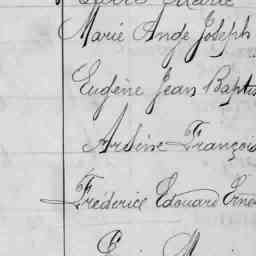 Marie Ange Joseph
Eugène Jean Baptis
Arsène François
Fréderice Edouard Ernes